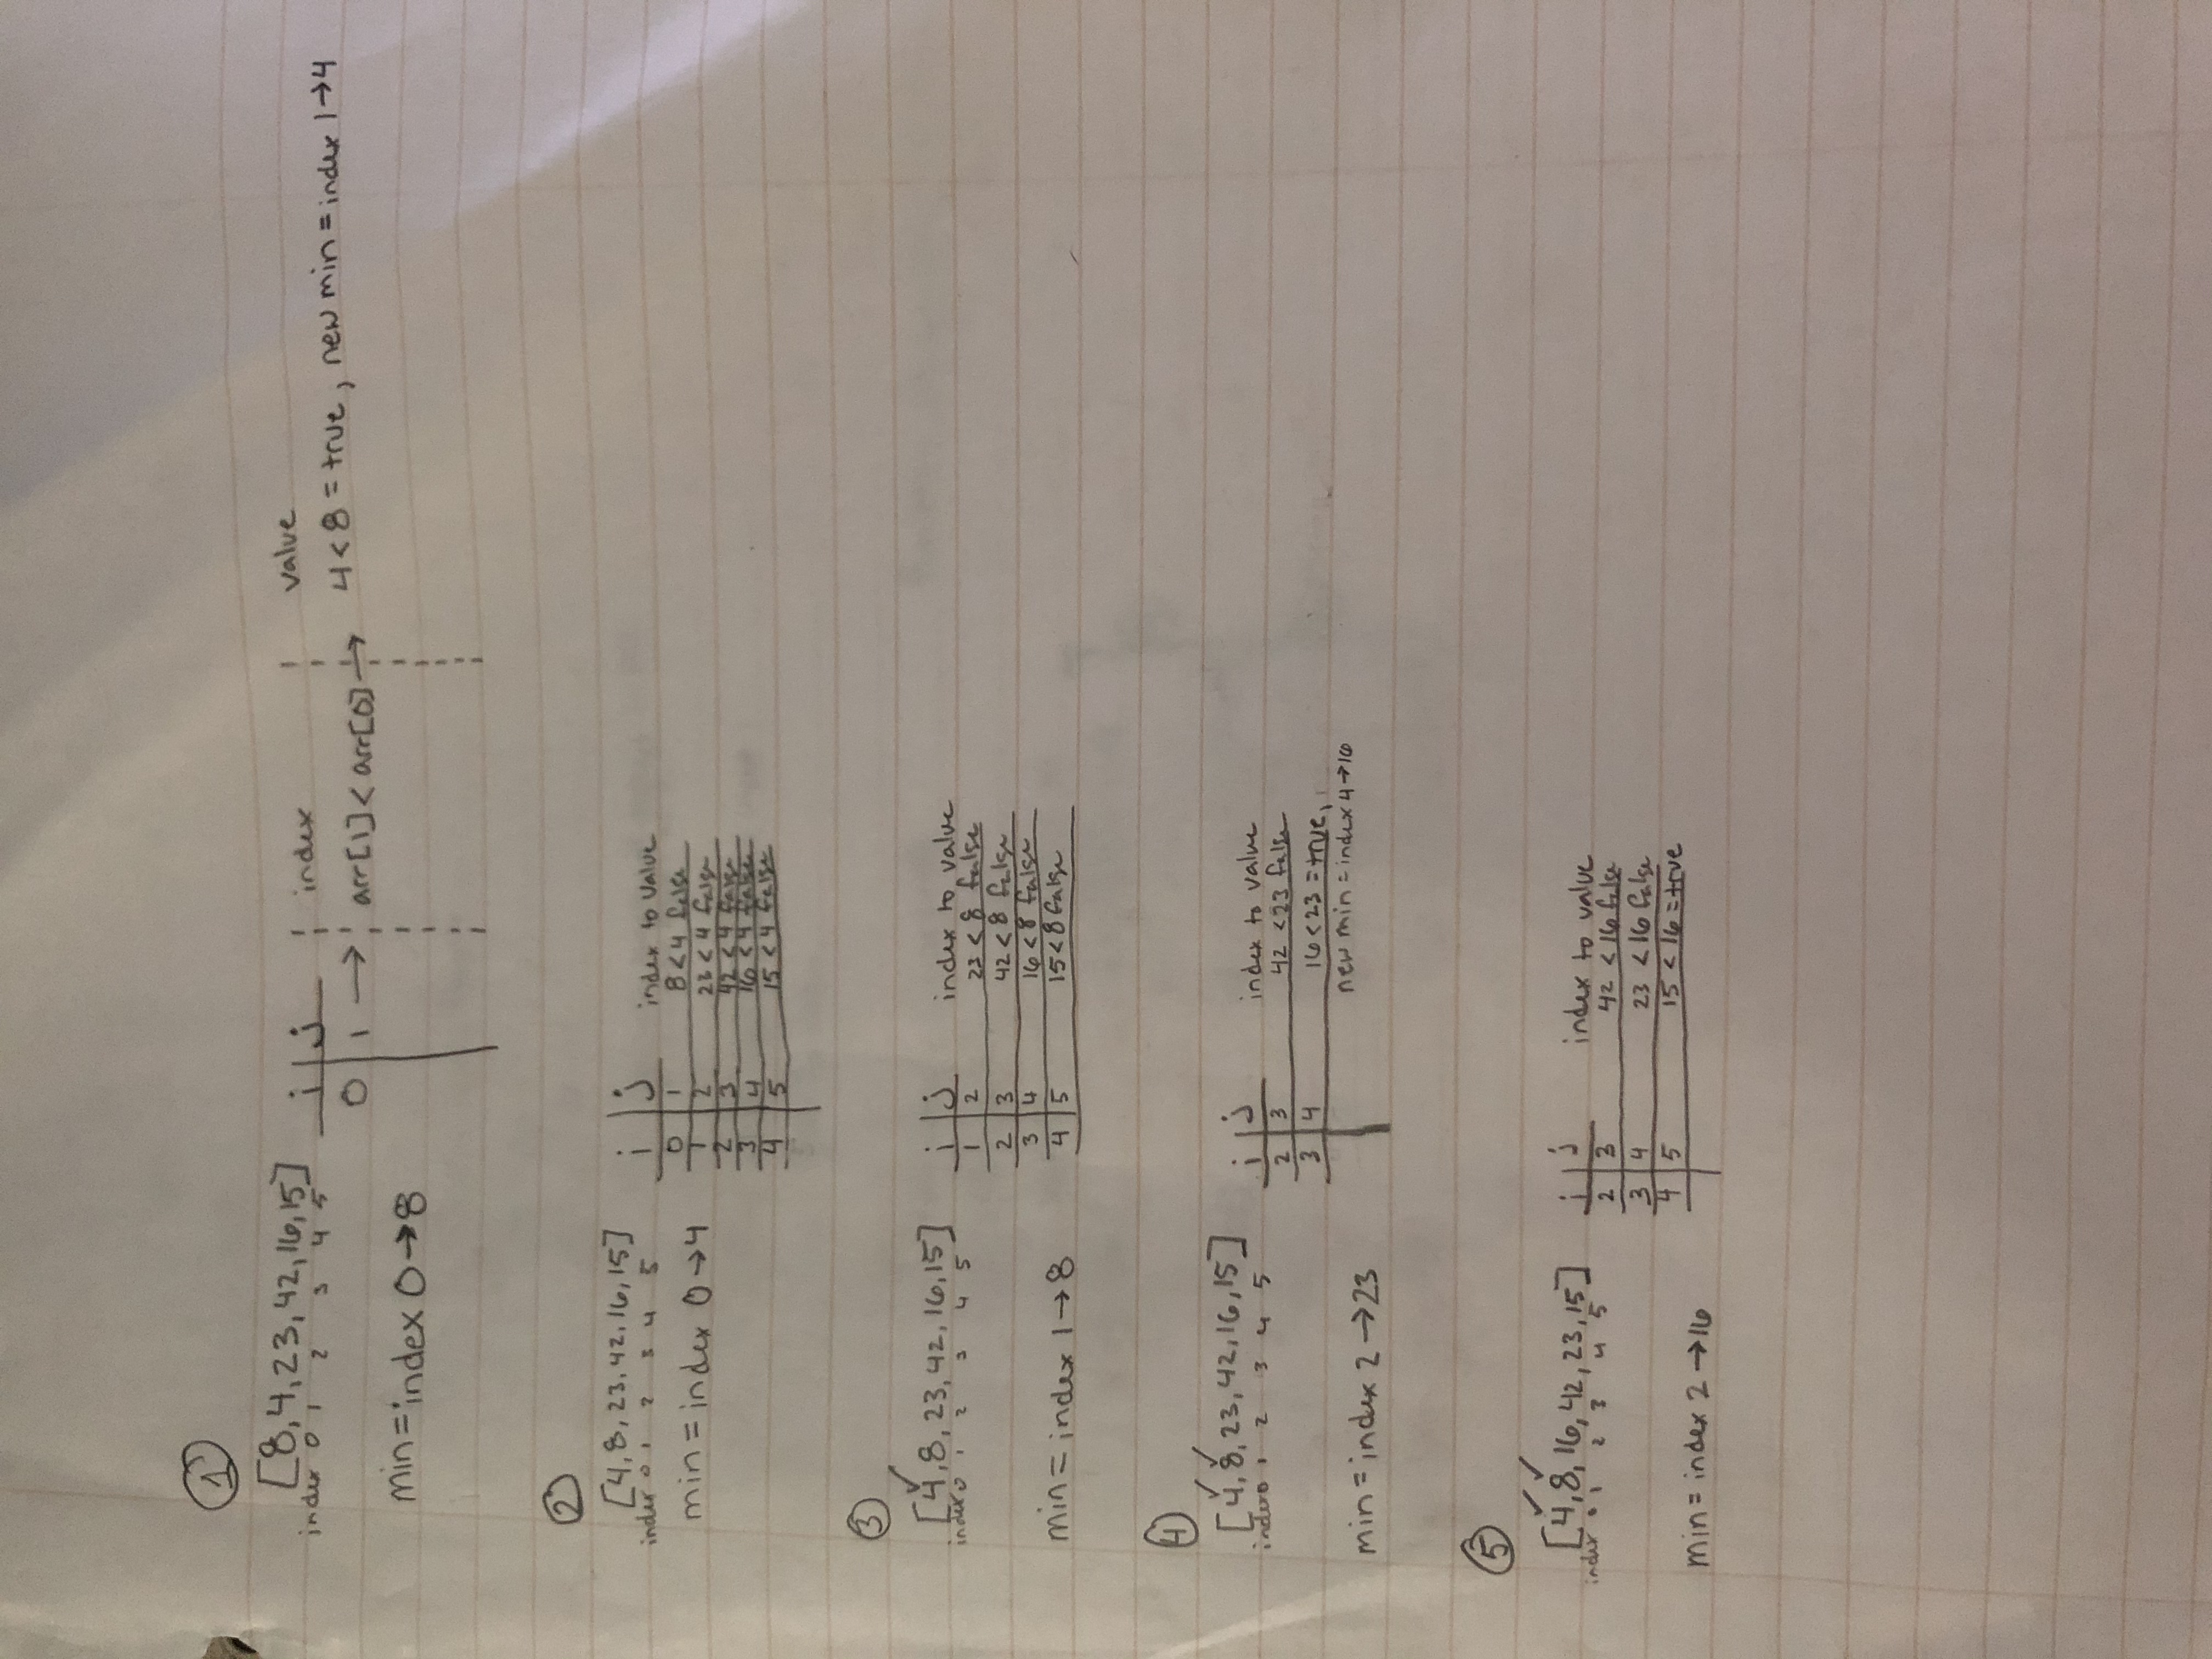 1
[8,4,23,42,16,15]
index 0 1 2 3 4 5
min = index 0 → 8
i j index value
0 1 → arr[1] < arr[0] → 4 < 8 = true, new min = index 1 → 4
2
[4,8,23,42,16,15]
index 0 1 2 3 4 5
min = index 0 → 4
i j index to value
0 1 8 < 4 false
1 2 23 < 4 false
2 3 42 < 4 false
3 4 16 < 4 false
4 5 15 < 4 false
3
[4,8,23,42,16,15]
index 0 1 2 3 4 5
min = index 1 → 8
i j index to value
1 2 23 < 8 false
2 3 42 < 8 false
3 4 16 < 8 false
4 5 15 < 8 false
4
[4,8,23,42,16,15]
index 0 1 2 3 4 5
min = index 2 → 23
i j index to value
2 3 42 < 23 false
3 4 16 < 23 = true,
new min = index 4 → 16
5
[4,8,16,42,23,15]
index 0 1 2 3 4 5
min = index 2 → 16
i j index to value
2 3 42 < 16 false
3 4 23 < 16 false
4 5 15 < 16 = true